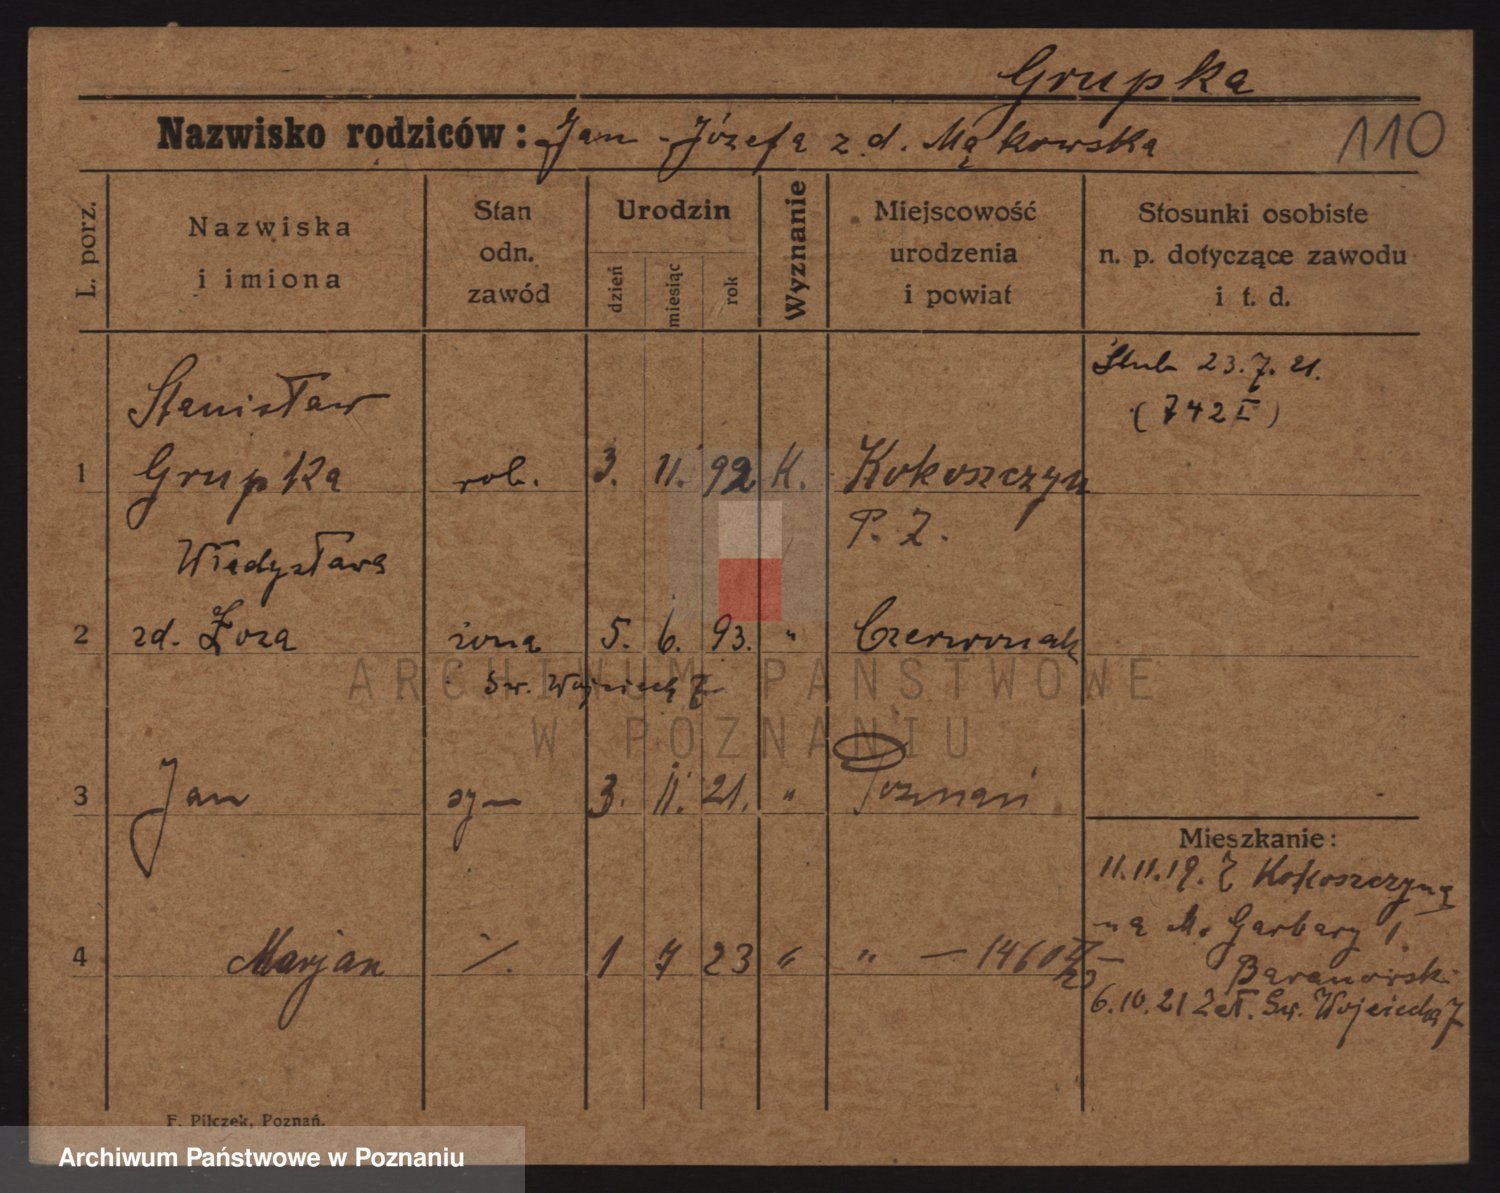 Grupka
Nazwisko rodziców: Jan - Józefa z d. Mąkowska
110
L. porz.
Nazwiska
i imiona
Stan
odn.
zawód
Urodzin
dzień
miesiąc
rok
Wyznanie
Miejscowość
urodzenia
i powiat
Stosunki osobiste
n. p. dotyczące zawodu
i t. d.
Ślub 23.7.21.
(742 I)
Stanisław
1 Grupka rob. 3. 11. 92 K. Kokoszczyn
P. Z.
Władysława
2 zd. Łoza żona 5. 6. 93. " Czerwonak
Św. Wojciech 7
3 Jan syn 3. 11. 21. " Poznań
Mieszkanie:
11.11.19. Z Kokoszczyna
na M. Garbary 1.
4 Marjan ./. 1 7 23 " " — 1460
Baranowski
6.10.21 Zał. Św. Wojciecha 7
F. Pilczek, Poznań.
ARCHIWUM PAŃSTWOWE
W POZNANIU
Archiwum Państwowe w Poznaniu